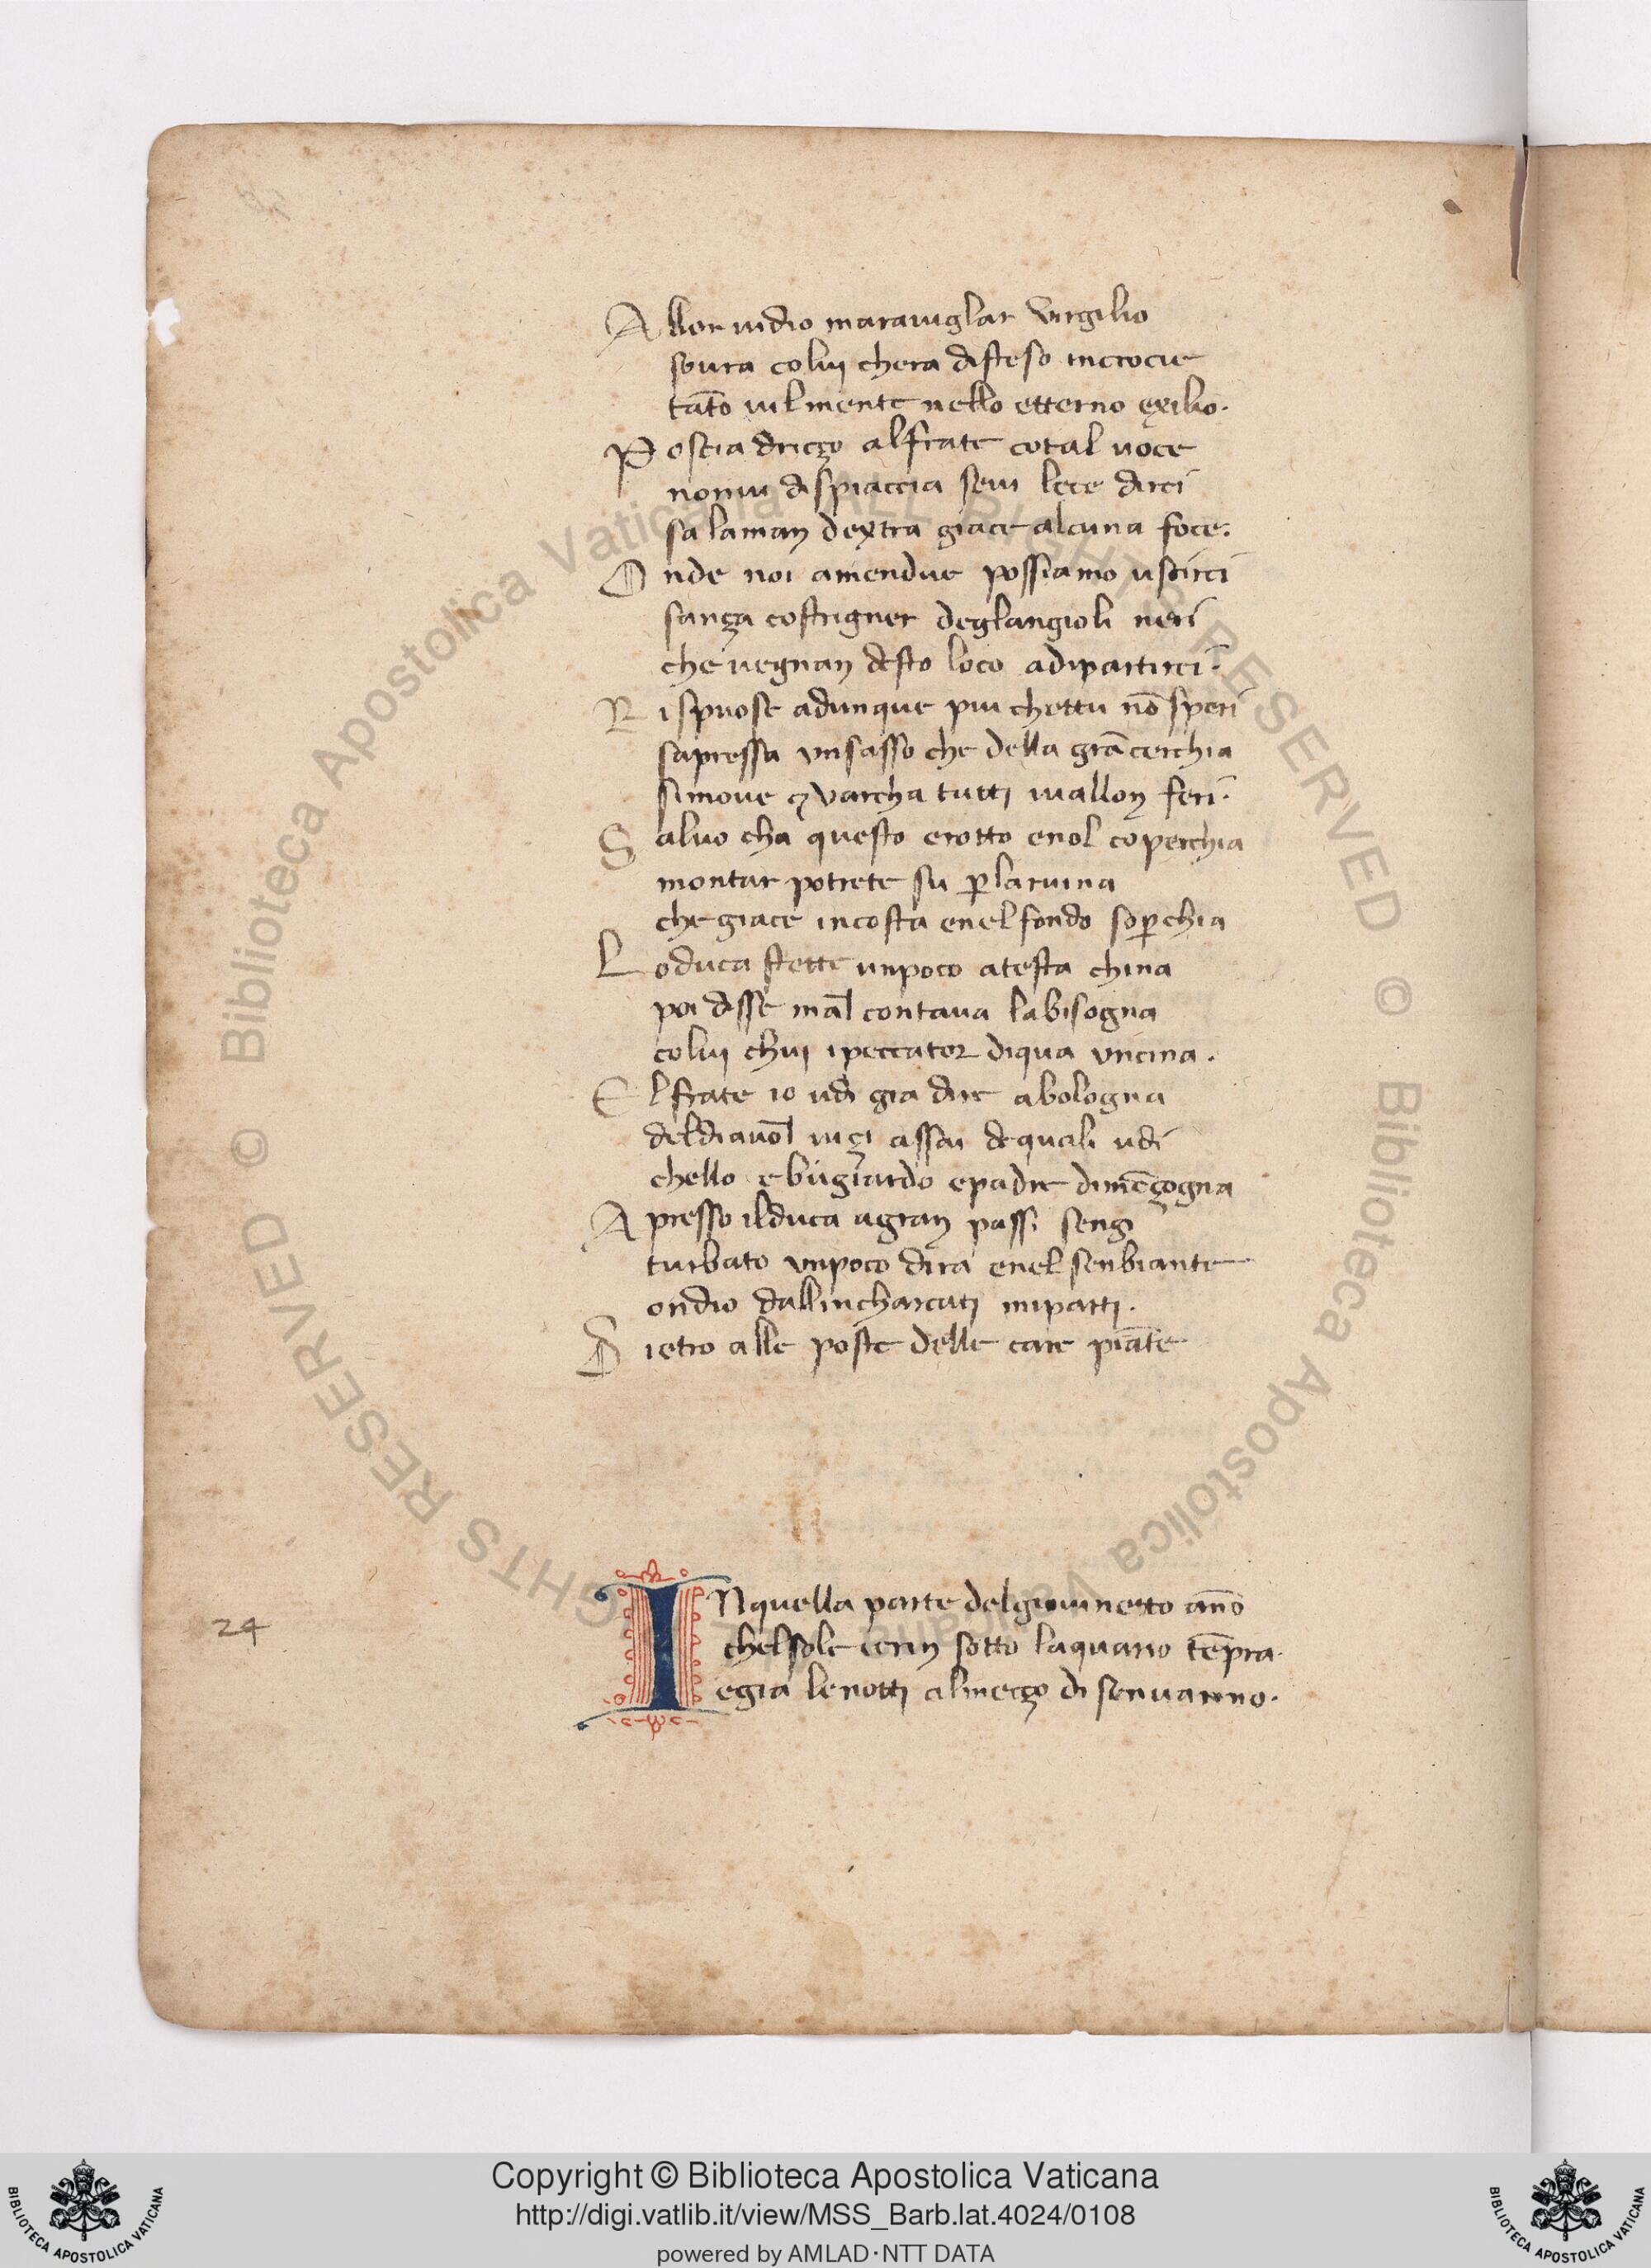 Allor uidio marauiglar Virgilio
soura coluj chera disteso incrocie
tāto uilmente nello etterno exilio.
Poscia driçço alfrate cotal uoce
nonui dispiaccia seui lece dirci
sa lamaɳ dextra giace alcuna foce.
Onde noi amendue possiamo uscirci
sança costrigner deglangioli neri
che uegnaɳ desto loco adipartirci.
Rispuose adunque piu chettu nō speri
sapressa vnsasso che della grācerchia
simoue ꝫ varcha tuttj iualloɳ feri.
Saluo cha questo erotto enol coperchia
montar potrete su ꝑ laruina
che giace incosta enelfondo soꝑchia
Loduca stette unpoco atesta china
poi disse mal contaua labisogna
coluj chuj ipeccator diqua vncina.
Elfrate io udi gia dire abologna
deldiauol uiçi assai dequali udi
chello e bugiardo epadre dimēçogna
Apresso ilduca agraɳ passi sengi
turbato vnpoco dira enel senbiante
ondio dallincharcatj mipartj.
Dietro alle poste delle care piāte
INquella parte delgiouinetto āno
chelsole icrin sotto laquario tēpra.
egia le nottj almeçço di senuanno.
24
Copyright © Biblioteca Apostolica Vaticana
http://digi.vatlib.it/view/MSS_Barb.lat.4024/0108
powered by AMLAD·NTT DATA
BIBLIOTECA APOSTOLICA VATICANA
BIBLIOTECA APOSTOLICA VATICANA